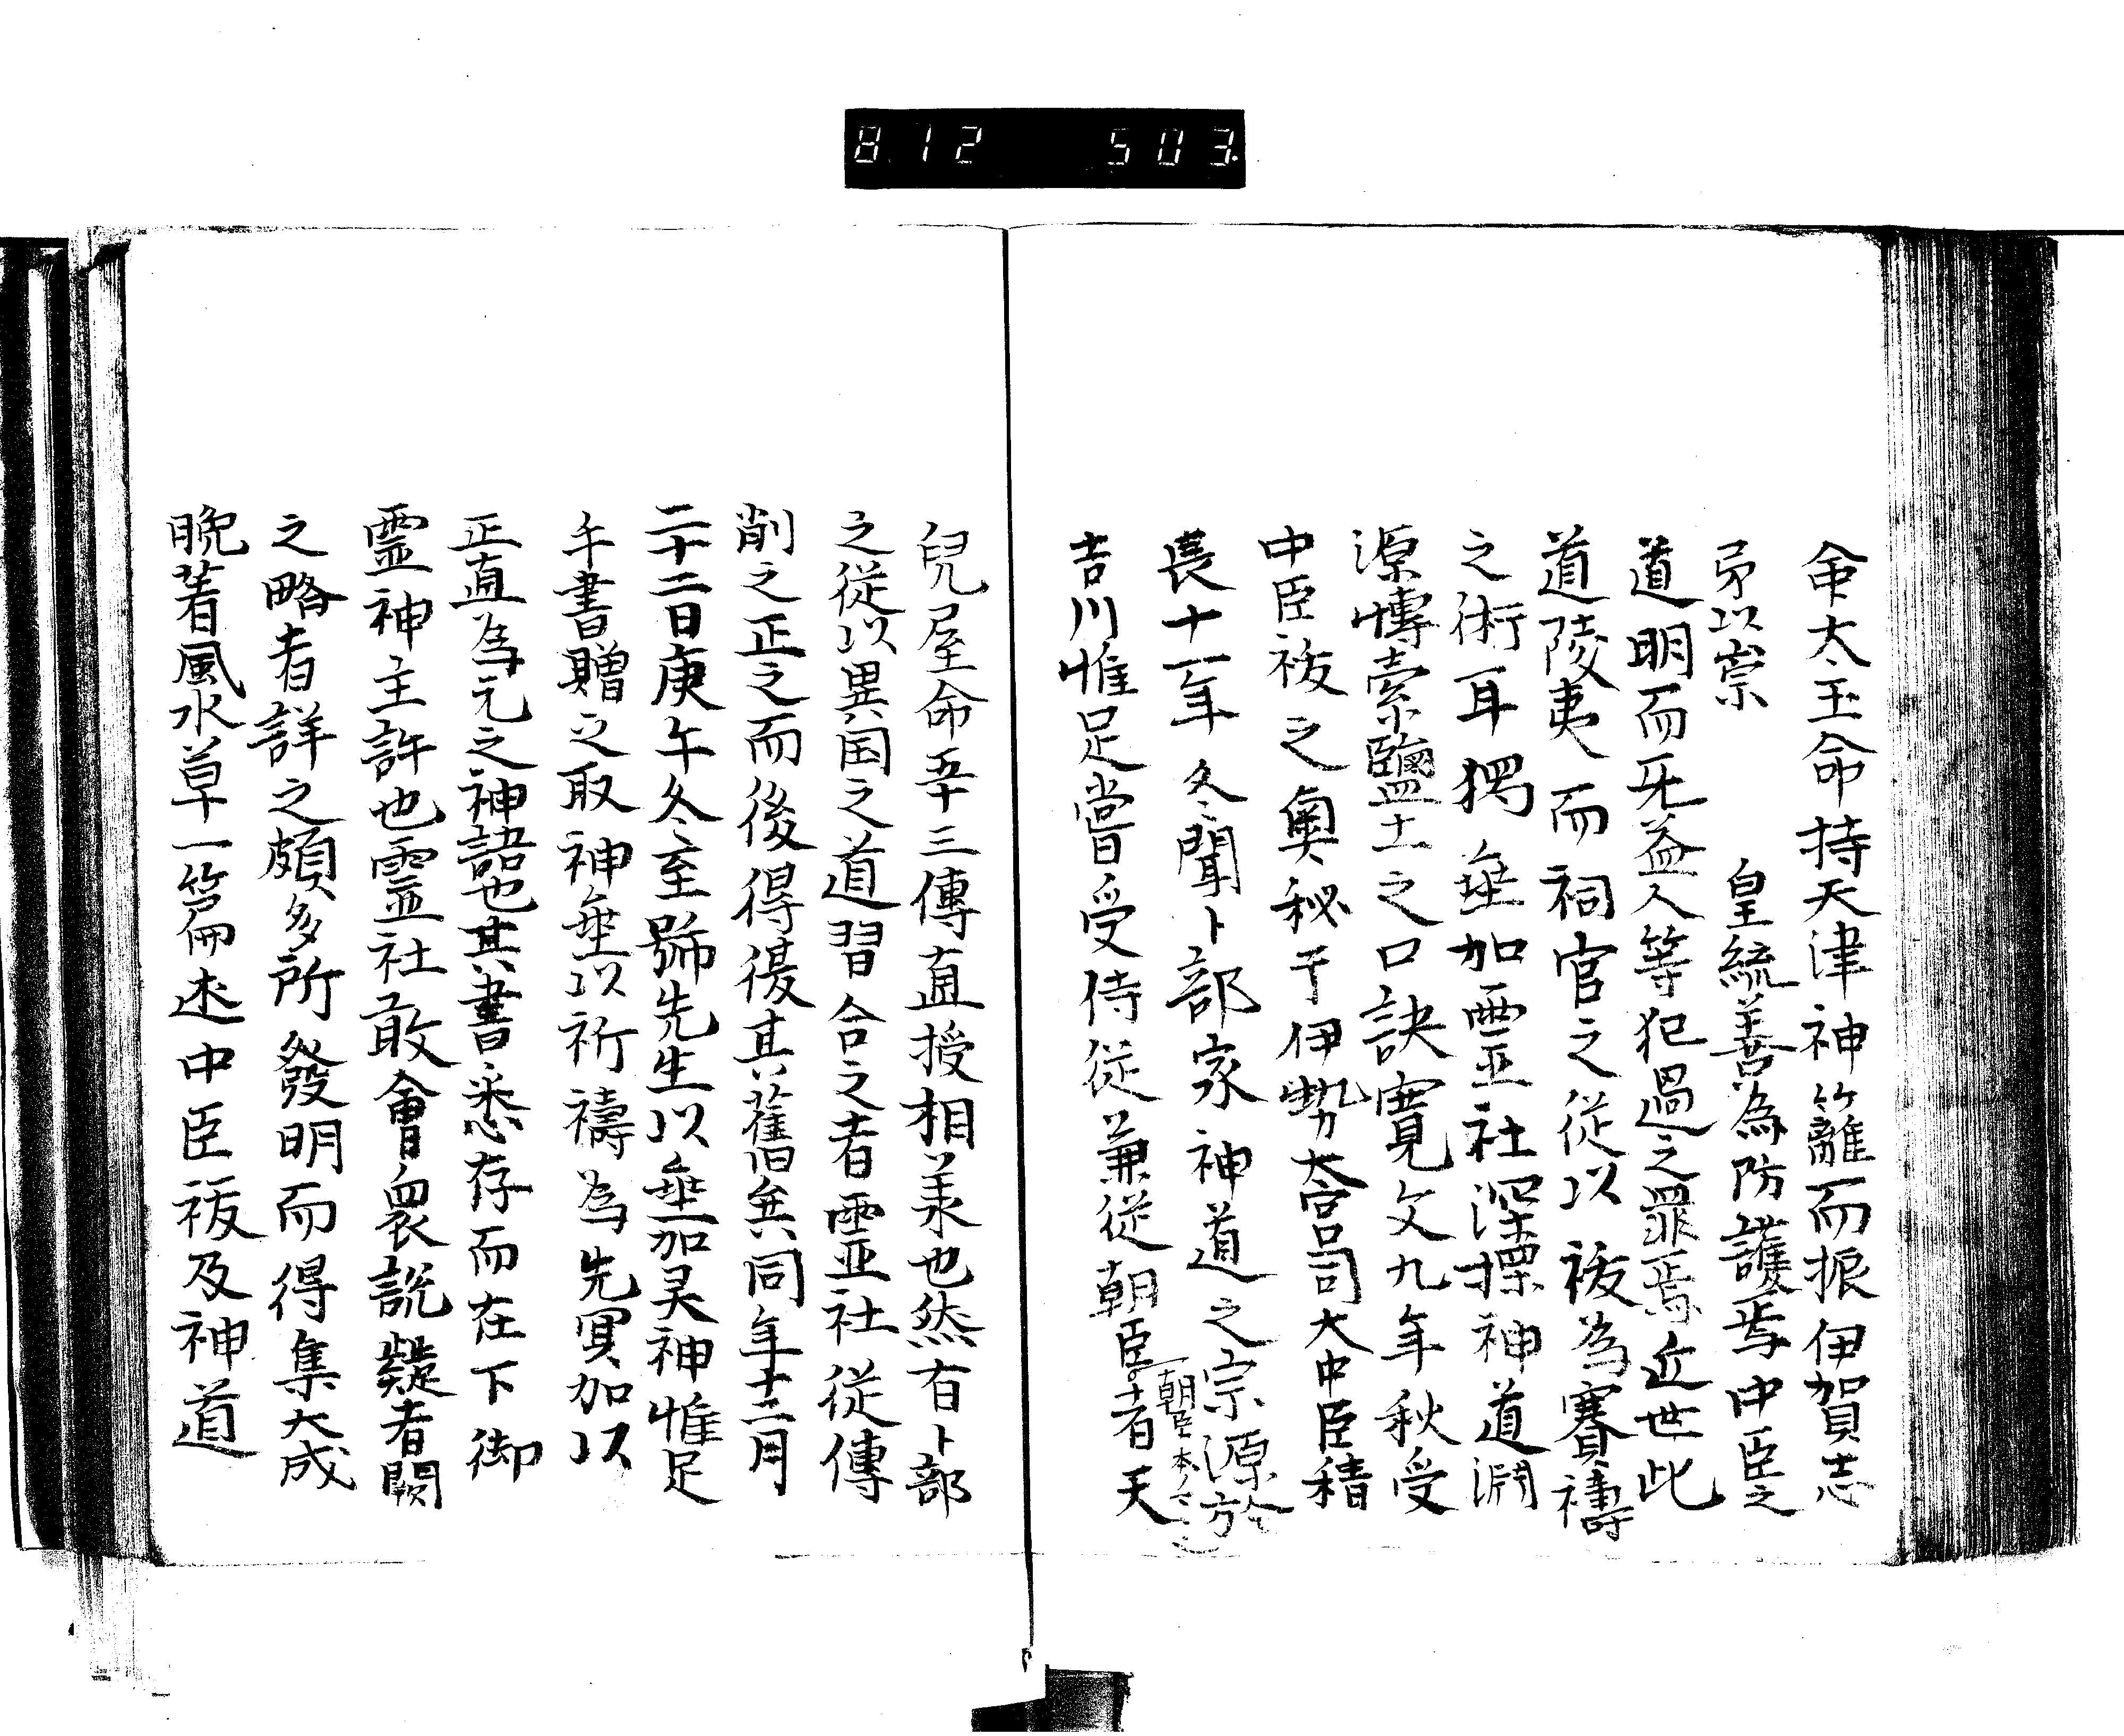 812 503.
命太玉命持天津神籬而振伊賀志
矛以崇　皇統善為防護焉中臣之
道明而旡益人等犯過之罪焉近世此
道陵夷而祠官之従以祓為賽禱
之術耳獨垂加霊社深探神道淵
源博索鹽土之口訣寛文九年秋受
中臣祓之奥秘于伊勢大宮司大中臣精
長十一年冬聞卜部家神道之宗源於
朝臣本
吉川惟足嘗受侍従兼従朝臣者天
兒屋命五十三傳直授相羕也然有卜部
之従以異国之道習合之者霊社従傳
削之正之而後得復其舊矣同年十二月
二十二日庚午冬至號先生以垂加灵神惟足
手書贈之取神垂以祈禱為先冥加以
正直為元之神語也其書悉存而在下御
霊神主許也霊社敢會衆説疑者闕
之略者詳之頗多所發明而得集大成
晩著風水草一篇述中臣祓及神道